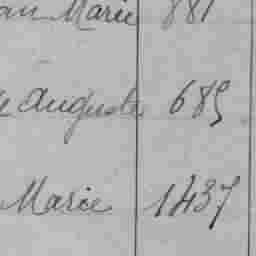 Marie 881
Auguste 689
Marie 1437